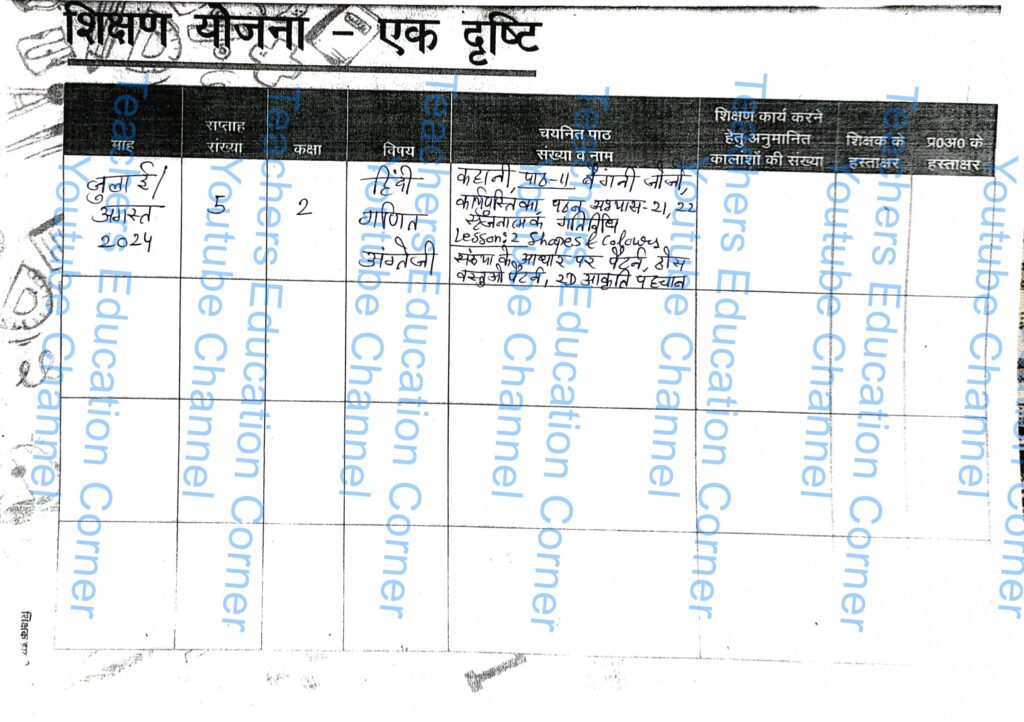 शिक्षण योजना – एक दृष्टि
माह
सप्ताह
संख्या
कक्षा
विषय
चयनित पाठ
संख्या व नाम
शिक्षण कार्य करने
हेतु अनुमानित
कालाशों की संख्या
शिक्षक के
हस्ताक्षर
प्र0अ0 के
हस्ताक्षर
जुलाई/
अगस्त
2024
5
2
हिंदी
गणित
अंग्रेजी
कहानी, पाठ-4 बैंगनी जोजो,
कार्यपुस्तिका पठन अभ्यास-21,22
सृजनात्मक गतिविधि
Lesson:2 Shapes & Colours
संख्या के आधार पर पैटर्न, ठोस
वस्तुओ पैटर्न, 2D आकृति पहचान
Teachers Education Corner
Youtube Channel
Teachers Education Corner
Youtube Channel
Teachers Education Corner
Youtube Channel
Teachers Education Corner
Youtube Channel
Teachers Education Corner
Youtube Channel
Teachers Education Corner
Youtube Channel
Teachers Education Corner
Youtube Channel